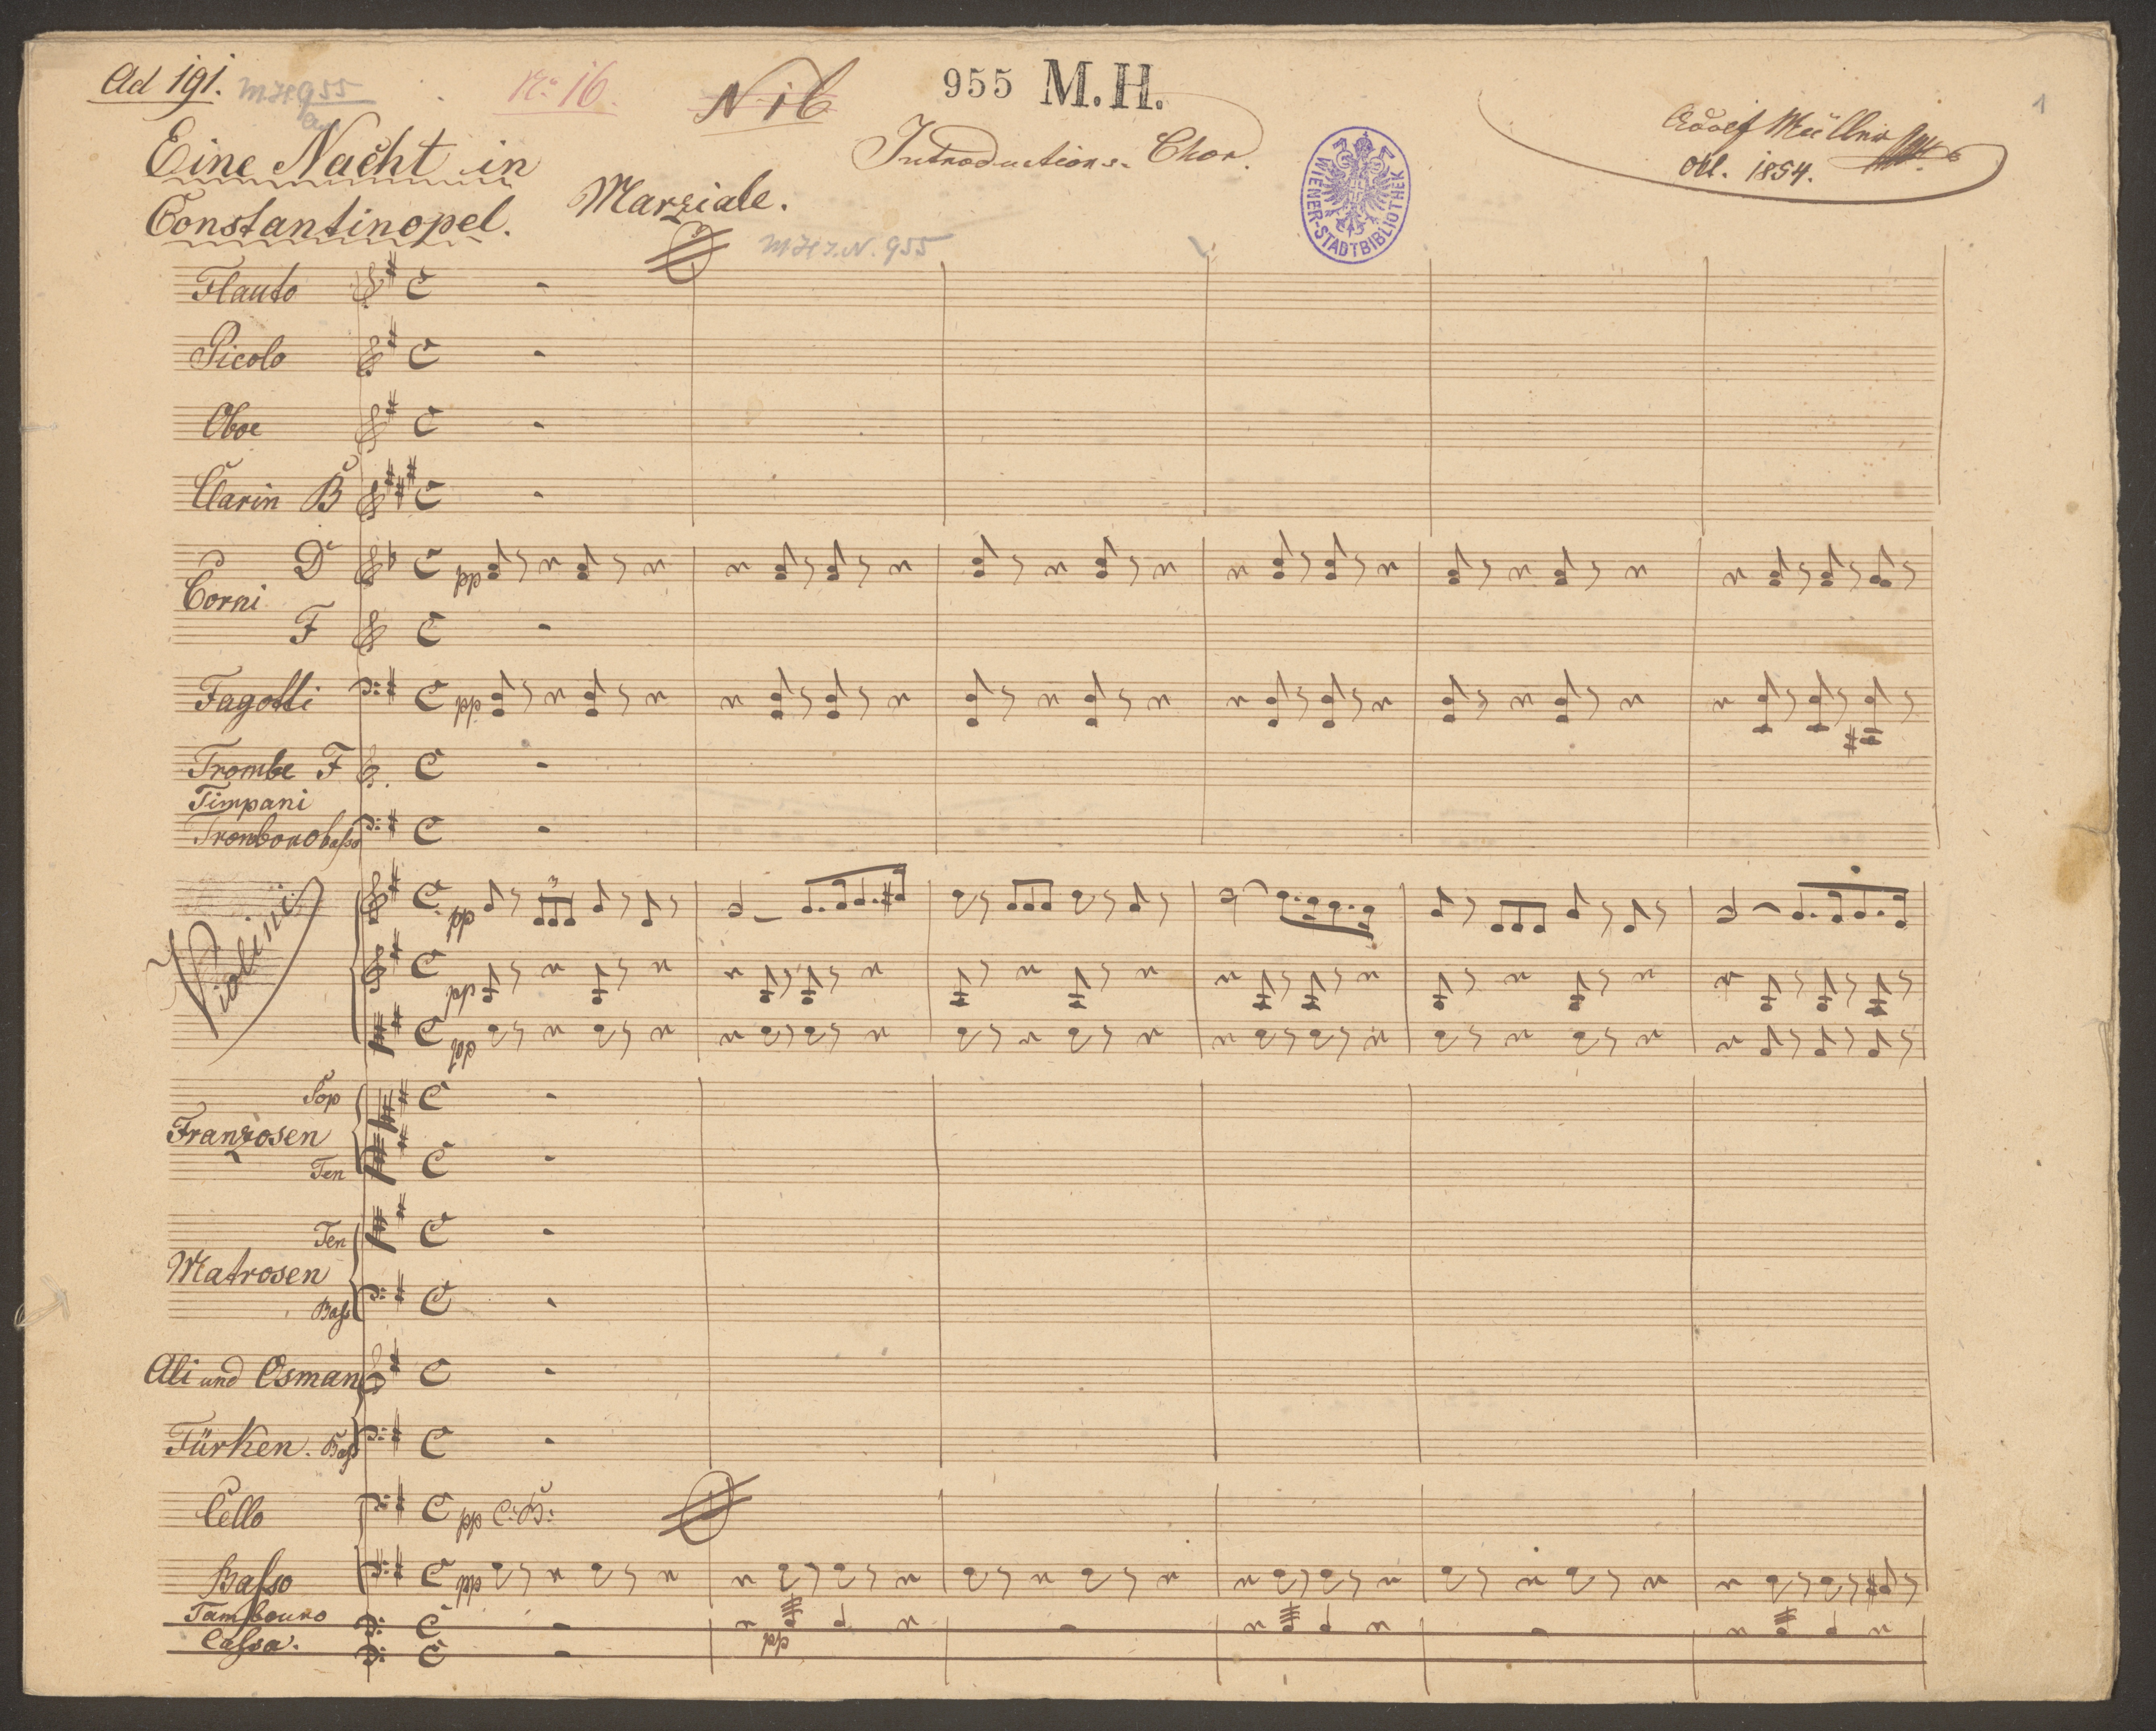 Ad 191. M.H. 955
No. 16. N 16 955 M.H. 1
Eine Nacht in
Constantinopel.
Marziale.
Introductions-Chor.
WIENER-STADTBIBLIOTHEK
Adolf Müller
Okt. 1854.
M.H.I.N. 955
Flauto
Picolo
Oboe
Clarin B
Corni D pp
F
Fagotti pp
Trombe F
Timpani
Trombono basso
Violini pp 3
pp
pp
Sop
Franzosen
Ten
Ten
Matrosen
Bass
Ali und Osman
Türken. Bass
Cello pp C: B:
Basso pp
Tambouro pp
Cassa.